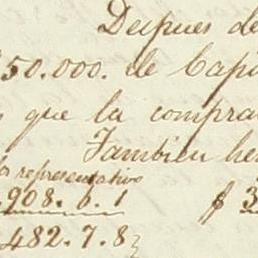 Despues de
50.000. de Capi
que la compra
Tambien he
representativo
908. 6. 1 $ 3
482. 7. 8